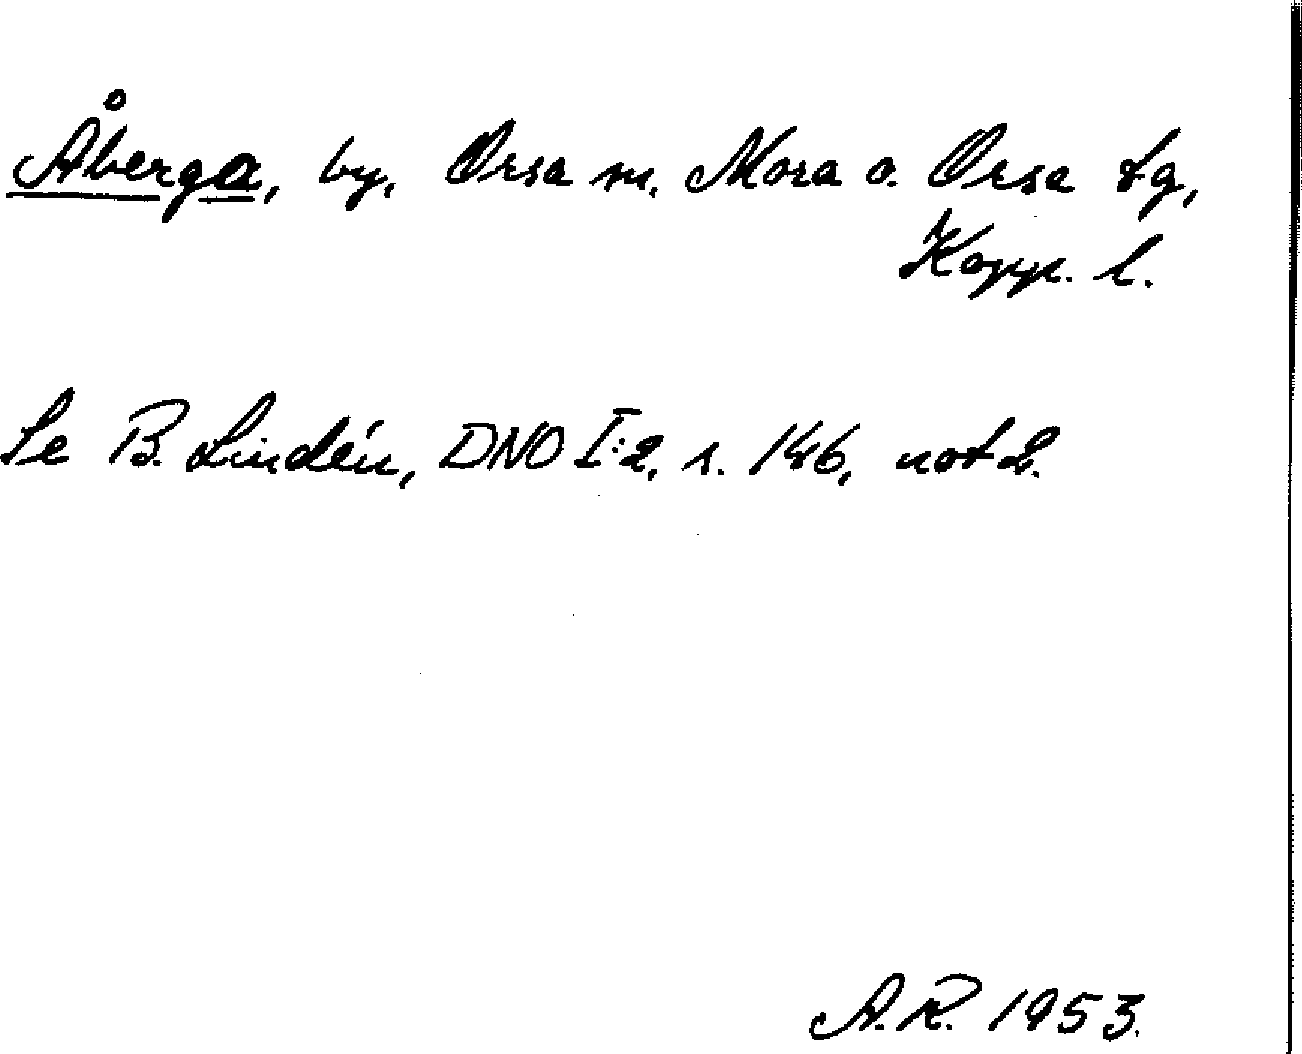 Åberga, by, Orsa sn. Mora o. Orsa tg,
Kopp. l.
Se B. Lindén, DNO I:2, s. 146, not 2.
A.R. 1953.